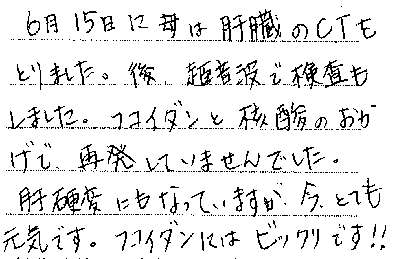 6月15日に母は肝臓のCTを
とりました。後、超音波で検査も
しました。フコイダンと核酸のおか
げで、再発していませんでした。
肝硬変にもなっていますが、今、とても
元気です。フコイダンにはビックリです!!